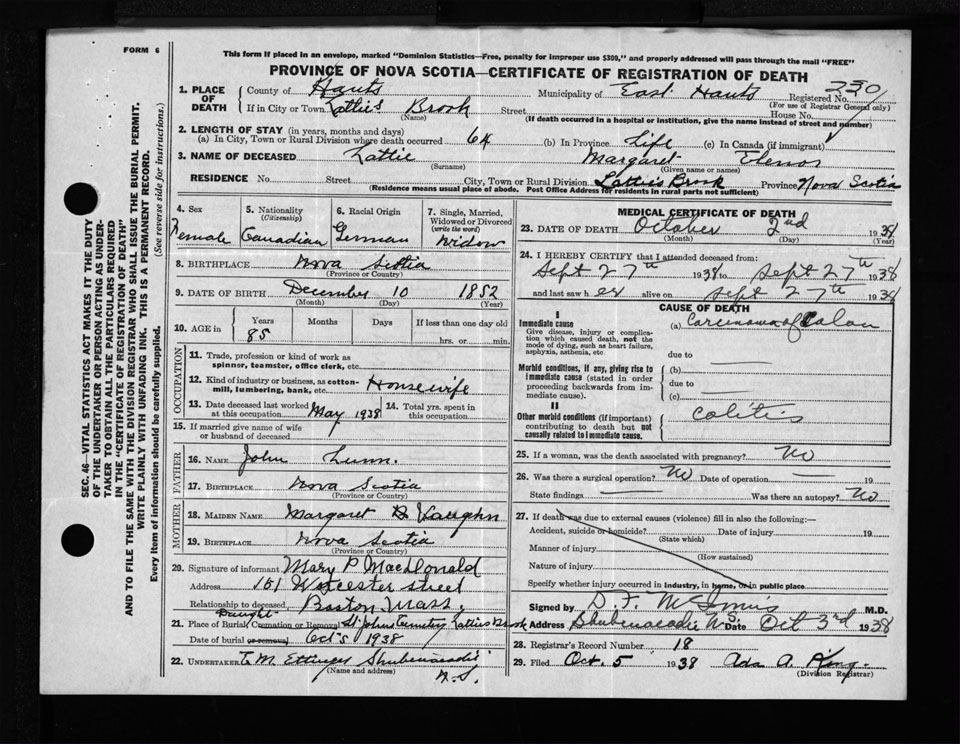 FORM 6
This form if placed in an envelope, marked "Dominion Statistics—Free, penalty for improper use $300," and properly addressed will pass through the mail "FREE"
PROVINCE OF NOVA SCOTIA—CERTIFICATE OF REGISTRATION OF DEATH
SEC. 46—VITAL STATISTICS ACT MAKES IT THE DUTY
OF THE UNDERTAKER OR PERSON ACTING AS UNDER-
TAKER TO OBTAIN ALL THE PARTICULARS REQUIRED
IN THE "CERTIFICATE OF REGISTRATION OF DEATH"
AND TO FILE THE SAME WITH THE DIVISION REGISTRAR WHO SHALL ISSUE THE BURIAL PERMIT.
WRITE PLAINLY WITH UNFADING INK. THIS IS A PERMANENT RECORD.
Every item of information should be carefully supplied. (See reverse side for instructions.)
1. PLACE OF DEATH County of Hants Municipality of East Hants Registered No. 230
(For use of Registrar General only)
If in City or Town Latties Brook Street House No.
(Name) (If death occurred in a hospital or institution, give the name instead of street and number)
2. LENGTH OF STAY (in years, months and days)
(a) In City, Town or Rural Division where death occurred 64 (b) In Province Life (c) In Canada (if immigrant)
3. NAME OF DECEASED Lattie Margaret Elenor
(Surname) (Given name or names)
RESIDENCE No. Street City, Town or Rural Division Lattie's Brook Province Nova Scotia
(Residence means usual place of abode. Post Office Address for residents in rural parts not sufficient)
4. Sex Female
5. Nationality (Citizenship) Canadian
6. Racial Origin German
7. Single, Married, Widowed or Divorced (write the word) Widow
8. BIRTHPLACE Nova Scotia
(Province or Country)
9. DATE OF BIRTH December 10 1852
(Month) (Day) (Year)
10. AGE in Years Months Days If less than one day old
85 hrs. or min.
OCCUPATION
11. Trade, profession or kind of work as spinner, teamster, office clerk, etc.
12. Kind of industry or business, as cotton-mill, lumbering, bank, etc. Housewife
13. Date deceased last worked at this occupation May 1938 14. Total yrs. spent in this occupation
15. If married give name of wife or husband of deceased
FATHER
16. NAME John Lunn.
17. BIRTHPLACE Nova Scotia
(Province or Country)
MOTHER
18. MAIDEN NAME Margaret B Vaughn
19. BIRTHPLACE Nova Scotia
(Province or Country)
20. Signature of informant Mary P MacDonald
Address 151 Worcester Street
Relationship to deceased Boston Mass.
Daught
21. Place of Burial, Cremation or Removal St John's Cemetery Latties Brook
Date of burial or removal Oct 5 1938
22. UNDERTAKER E M Ettinger Shubenacadie
(Name and address) N.S.
MEDICAL CERTIFICATE OF DEATH
23. DATE OF DEATH October 2nd 1938
(Month) (Day) (Year)
24. I HEREBY CERTIFY that I attended deceased from:
Sept 27th 1938 to Sept 27th 1938
and last saw her alive on Sept 27th 1938
CAUSE OF DEATH
I
Immediate cause (a) Carcinoma of Colon
Give disease, injury or complication which caused death, not the mode of dying, such as heart failure, asphyxia, asthenia, etc.
due to
Morbid conditions, if any, giving rise to immediate cause (stated in order proceeding backwards from immediate cause).
(b)
due to
(c)
II
Other morbid conditions (if important) contributing to death but not causally related to immediate cause. Colitis
25. If a woman, was the death associated with pregnancy? No
26. Was there a surgical operation? No Date of operation 19
State findings Was there an autopsy? No
27. If death was due to external causes (violence) fill in also the following:—
Accident, suicide or homicide? Date of injury 19
(State which)
Manner of injury
(How sustained)
Nature of injury
Specify whether injury occurred in industry, in home, or in public place
Signed by D. F. McInnis M.D.
Address Shubenacadie N.S. Date Oct 3rd 1938
28. Registrar's Record Number 18
29. Filed Oct. 5 1938 Ada A. King.
(Division Registrar)